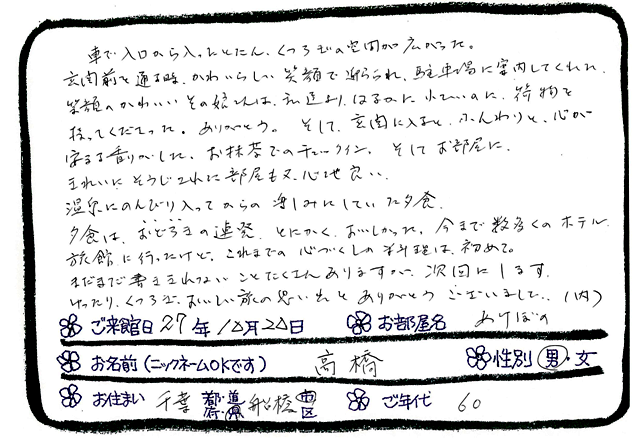 車で入口から入ったとたん、くつろぎの空間が広がった。
玄関前を通る時、かわいらしい笑顔で迎られ、駐車場に案内してくれた。
笑顔のかわいいその娘さんは、私達より、はるかに小さいのに、荷物を
持ってくださった。ありがとう。そして、玄関に入ると、ふんわりと、心が
安まる香りがした。お抹茶でのチェックイン、そしてお部屋に。
きれいにそうじされた部屋も又、心地良い。
温泉にのんびり入ってからの楽しみにしていた夕食。
夕食は、おどろきの連発、とにかく、おいしかった。今まで数多くのホテル
旅館に行ったけど、これまでの心づくしの料理は、初めて。
まだまだ書ききれないことたくさんありますが、次回にします。
ゆったり、くつろぎ、おいしい旅の思い出をありがとうございました。(内)
ご来館日 27年 12月22日 お部屋名 あけぼの
お名前(ニックネームOKです) 高橋 性別 男・女
お住まい 千葉 都・道 府・県 船橋 市 区 ご年代 60